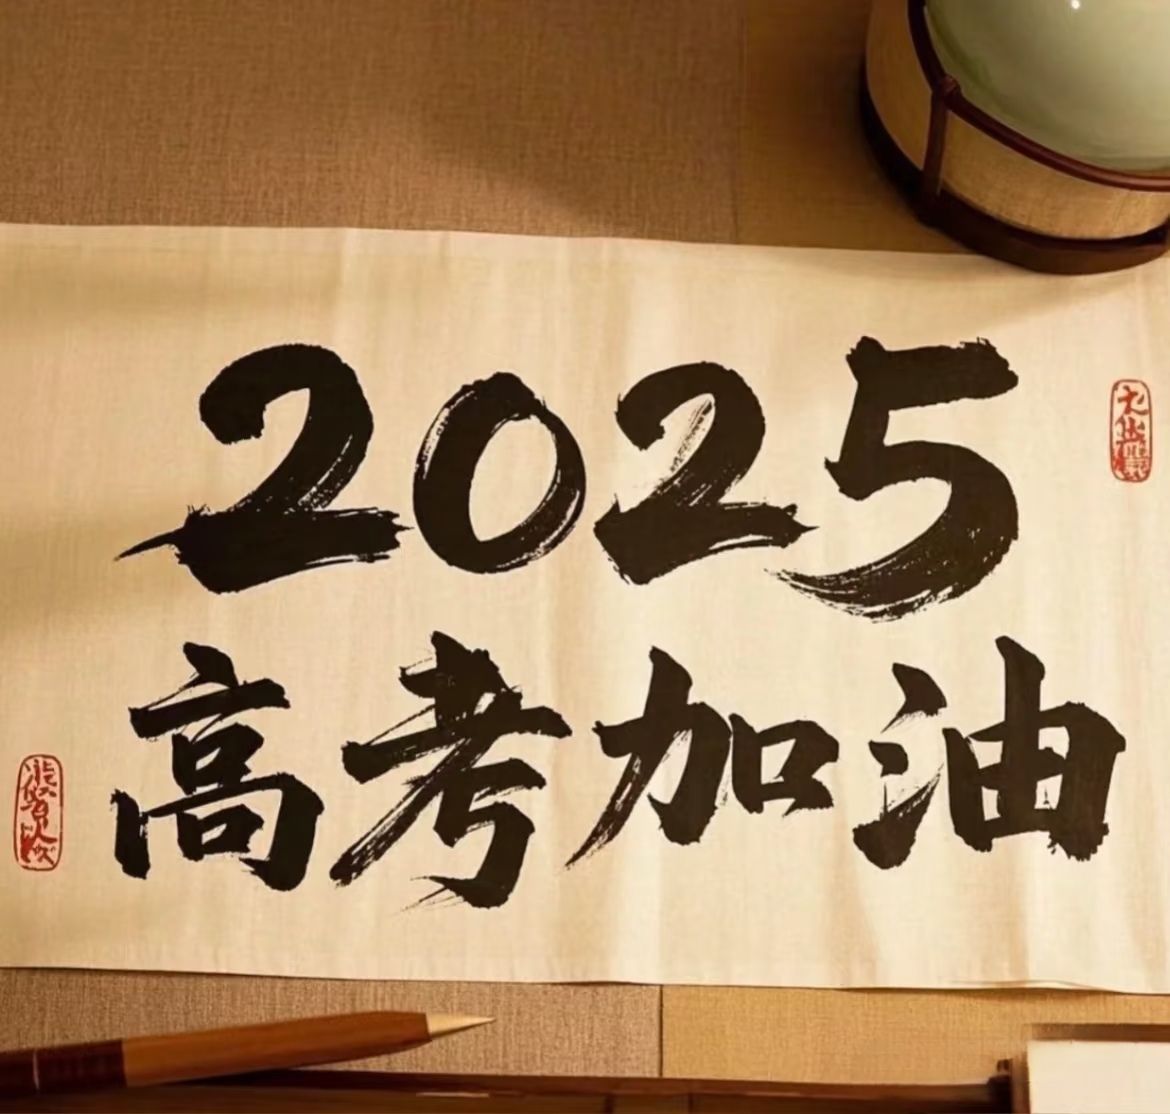 2025
高考加油